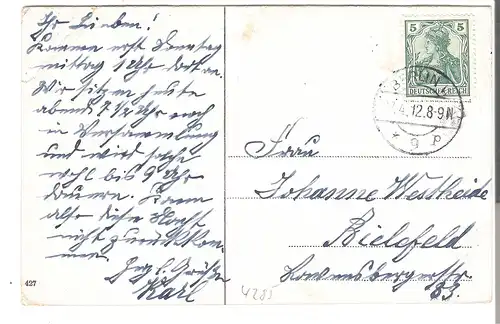 Ihr Lieben!
Komme erst Sonntag
mittag 1 Uhr dort an.
Wir sitzen heute
abend 7 1/2 Uhr noch
in Versammlung
und wird sache
wohl bis 9 Uhr
dauern. Kann
also diese Nacht
nicht zurückkom-
men.
Herzl. Grüße
Karl
427
5
DEUTSCHES REICH
BERLIN
4.12.8-9N
* 9 P
Frau
Johanne Westheide
Bielefeld
Ravensbergerstr.
33.
4285